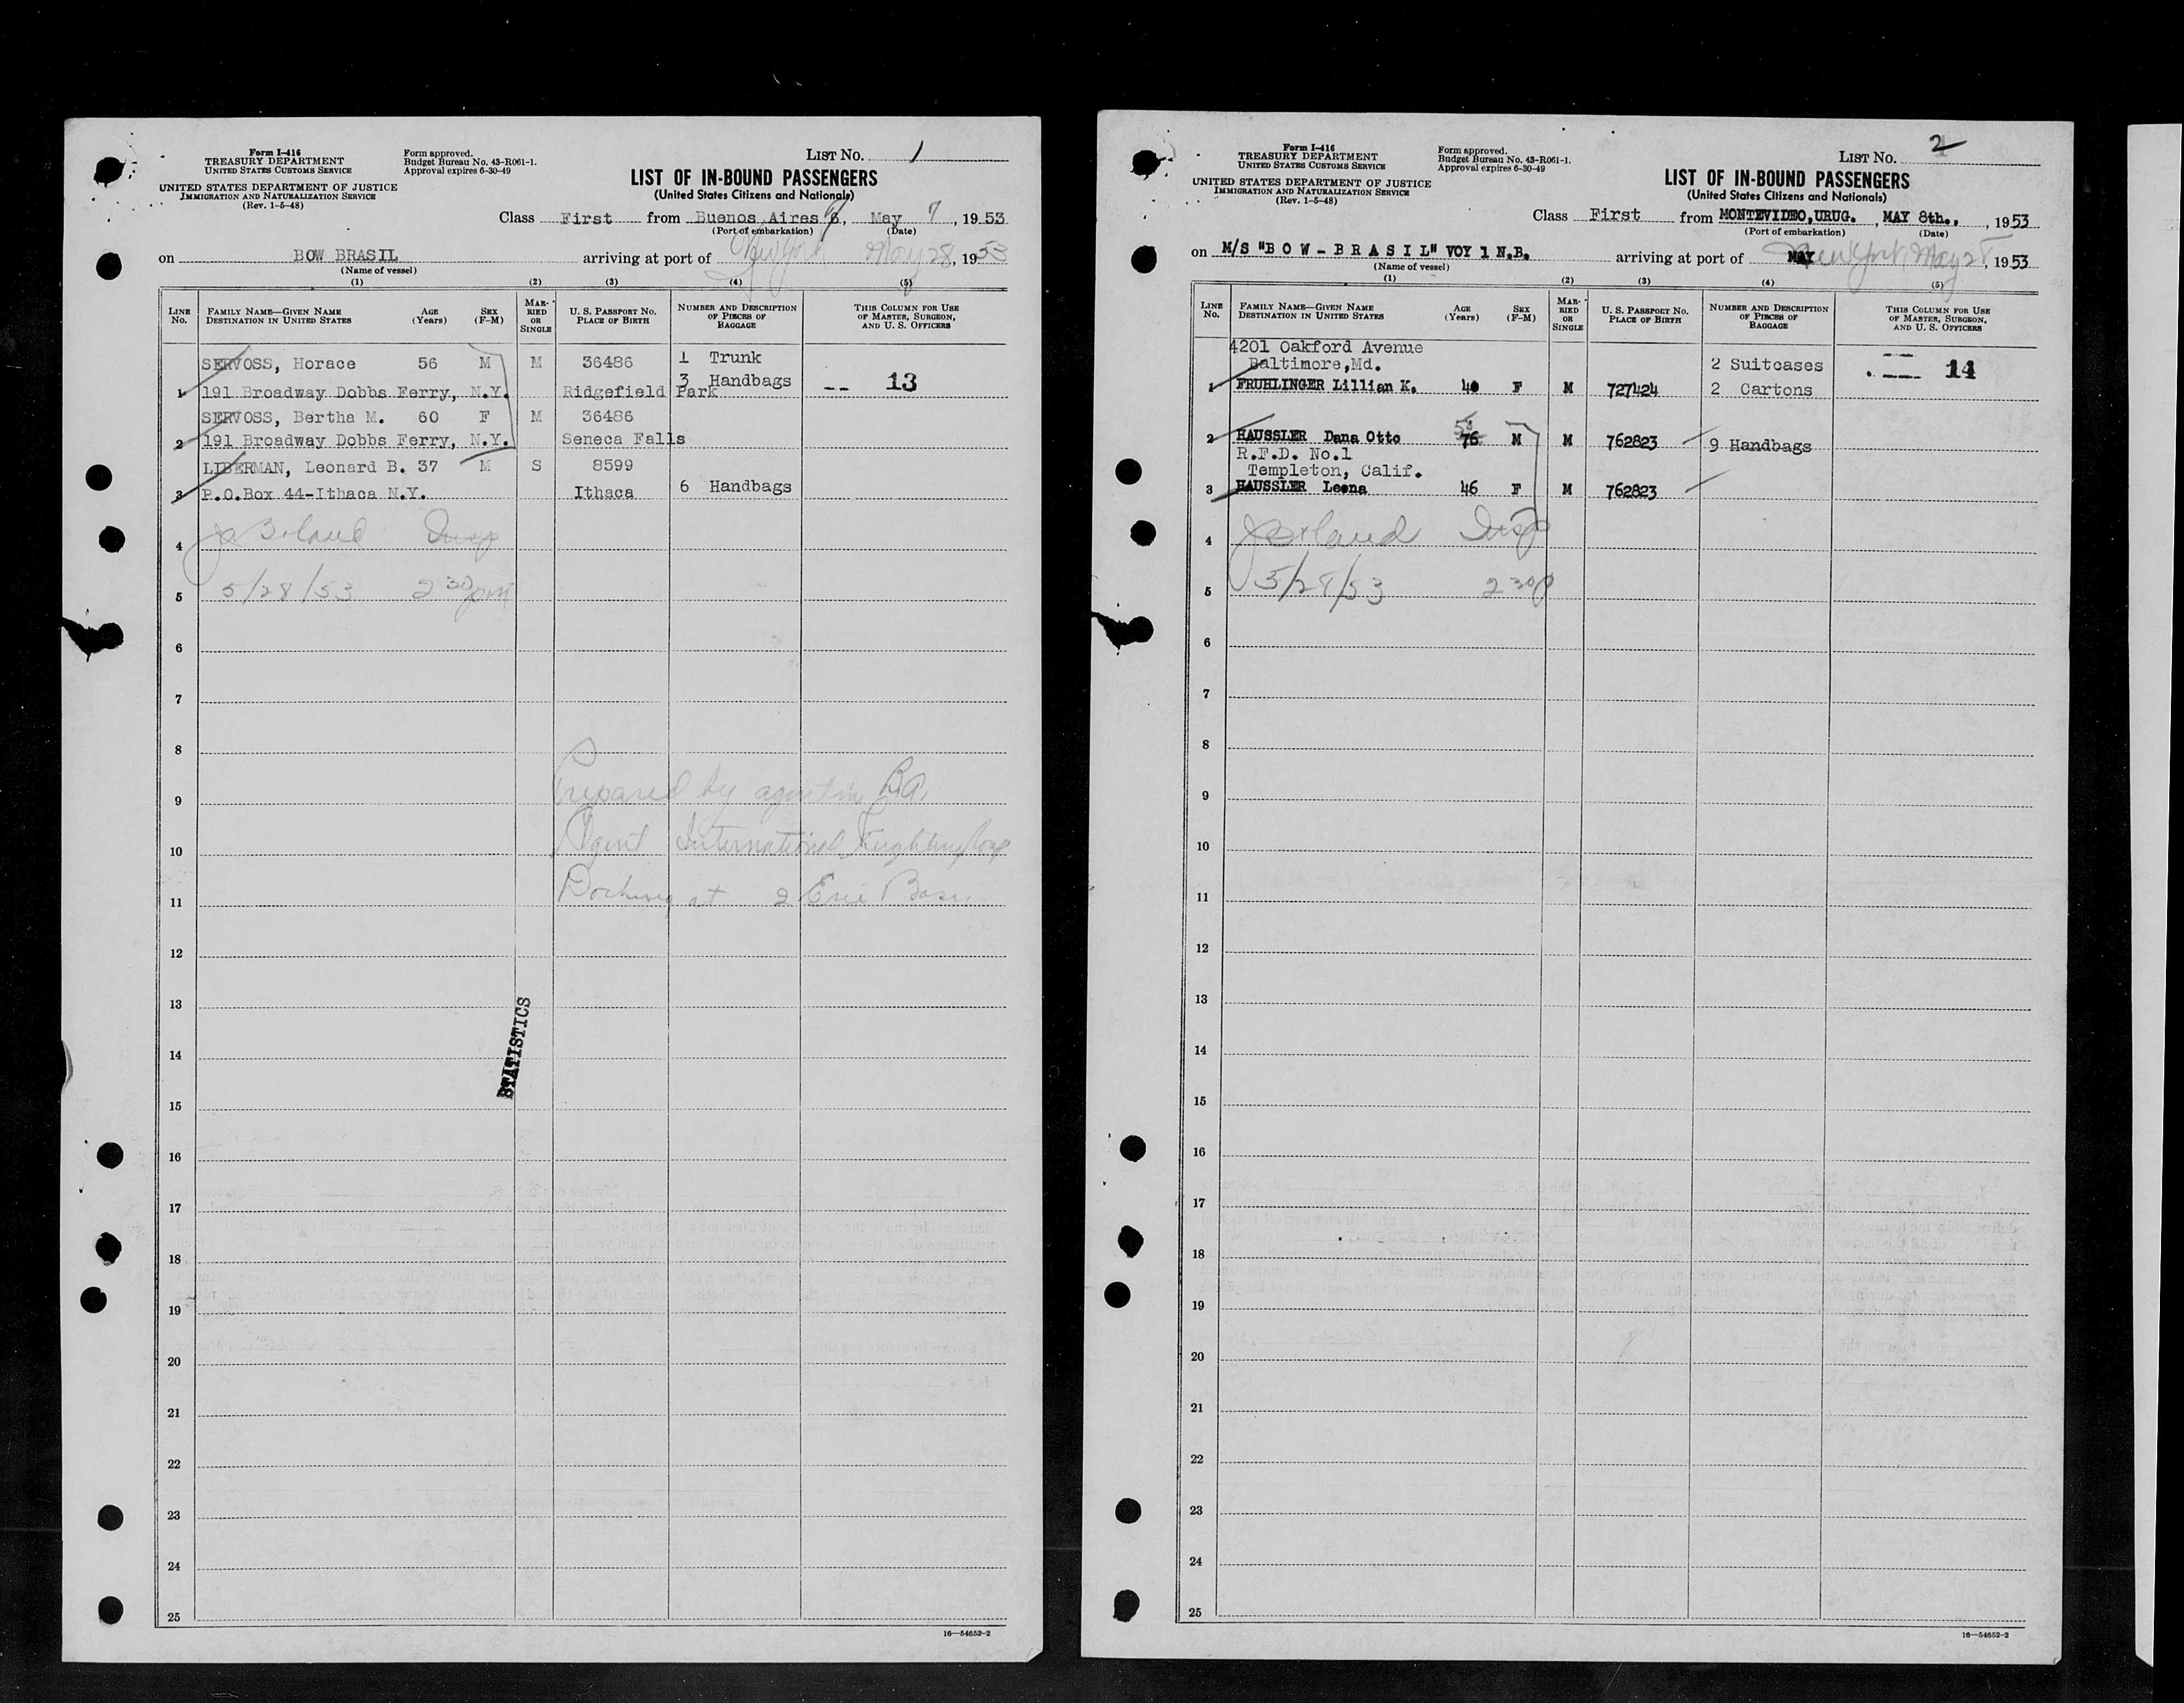 Form I-416
TREASURY DEPARTMENT
UNITED STATES CUSTOMS SERVICE
UNITED STATES DEPARTMENT OF JUSTICE
IMMIGRATION AND NATURALIZATION SERVICE
(Rev. 1-5-48)
Form approved.
Budget Bureau No. 43-R061-1.
Approval expires 6-30-49
LIST No. 1
LIST OF IN-BOUND PASSENGERS
(United States Citizens and Nationals)
Class First from Buenos Aires, May 7, 1953
(Port of embarkation) (Date)
on BOW BRASIL arriving at port of New York May 28, 1953
(Name of vessel)
(1) (2) (3) (4) (5)
LINE No. FAMILY NAME—GIVEN NAME DESTINATION IN UNITED STATES AGE (Years) SEX (F-M) MARRIED OR SINGLE U. S. PASSPORT NO. PLACE OF BIRTH NUMBER AND DESCRIPTION OF PIECES OF BAGGAGE THIS COLUMN FOR USE OF MASTER, SURGEON, AND U. S. OFFICERS
SERVOSS, Horace 56 M M 36486 1 Trunk
3 Handbags -- 13
1 191 Broadway Dobbs Ferry, N.Y. Ridgefield Park
SERVOSS, Bertha M. 60 F M 36486
2 191 Broadway Dobbs Ferry, N.Y. Seneca Falls
LIBERMAN, Leonard B. 37 M S 8599
3 P.O.Box 44-Ithaca N.Y. Ithaca 6 Handbags
4 Insp
5 5/28/53 2 30 pm
6
7
8
9 Prepared by agent in B.A.
10 Agent International Freighting Corp
11 Docking at 2 Erie Basin
12
13
STATISTICS
14
15
16
17
18
19
20
21
22
23
24
25
16—54652-2
Form I-416
TREASURY DEPARTMENT
UNITED STATES CUSTOMS SERVICE
UNITED STATES DEPARTMENT OF JUSTICE
IMMIGRATION AND NATURALIZATION SERVICE
(Rev. 1-5-48)
Form approved.
Budget Bureau No. 43-R061-1.
Approval expires 6-30-49
LIST No. 2
LIST OF IN-BOUND PASSENGERS
(United States Citizens and Nationals)
Class First from MONTEVIDEO,URUG., MAY 8th., 1953
(Port of embarkation) (Date)
on M/S "B O W - B R A S I L" VOY 1 N.B. arriving at port of New York, May 28, 1953
(Name of vessel)
(1) (2) (3) (4) (5)
LINE No. FAMILY NAME—GIVEN NAME DESTINATION IN UNITED STATES AGE (Years) SEX (F-M) MARRIED OR SINGLE U. S. PASSPORT NO. PLACE OF BIRTH NUMBER AND DESCRIPTION OF PIECES OF BAGGAGE THIS COLUMN FOR USE OF MASTER, SURGEON, AND U. S. OFFICERS
4201 Oakford Avenue
Baltimore,Md. 2 Suitcases 14
1 FRUHLINGER Lillian K. 40 F M 727424 2 Cartons
2 HAUSSLER Dana Otto 76 M M 762823 9 Handbags
R.F.D. No.1
Templeton, Calif.
3 HAUSSLER Leona 46 F M 762823
4 Insp
5 5/28/53 2 30 p
6
7
8
9
10
11
12
13
14
15
16
17
18
19
20
21
22
23
24
25
16—54652-2